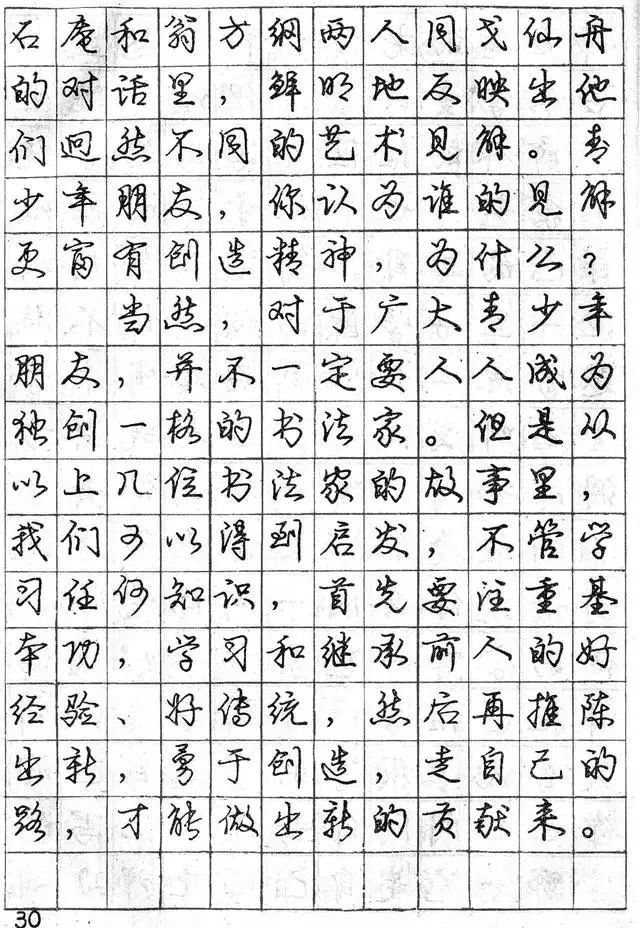 石庵和翁方纲两人同戈仙舟
的对话里，鲜明地反映出他
们迥然不同的艺术见解。青
少年朋友，你认为谁的见解
更富有创造精神，为什么？
当然，对于广大青少年
朋友，并不一定要人人成为
独创一格的书法家。但是从
以上几位书法家的故事里，
我们可以得到启发，不管学
习任何知识，首先要注重基
本功，学习和继承前人的好
经验、好传统，然后再推陈
出新，勇于创造，走自己的
路，才能做出新的贡献来。
30